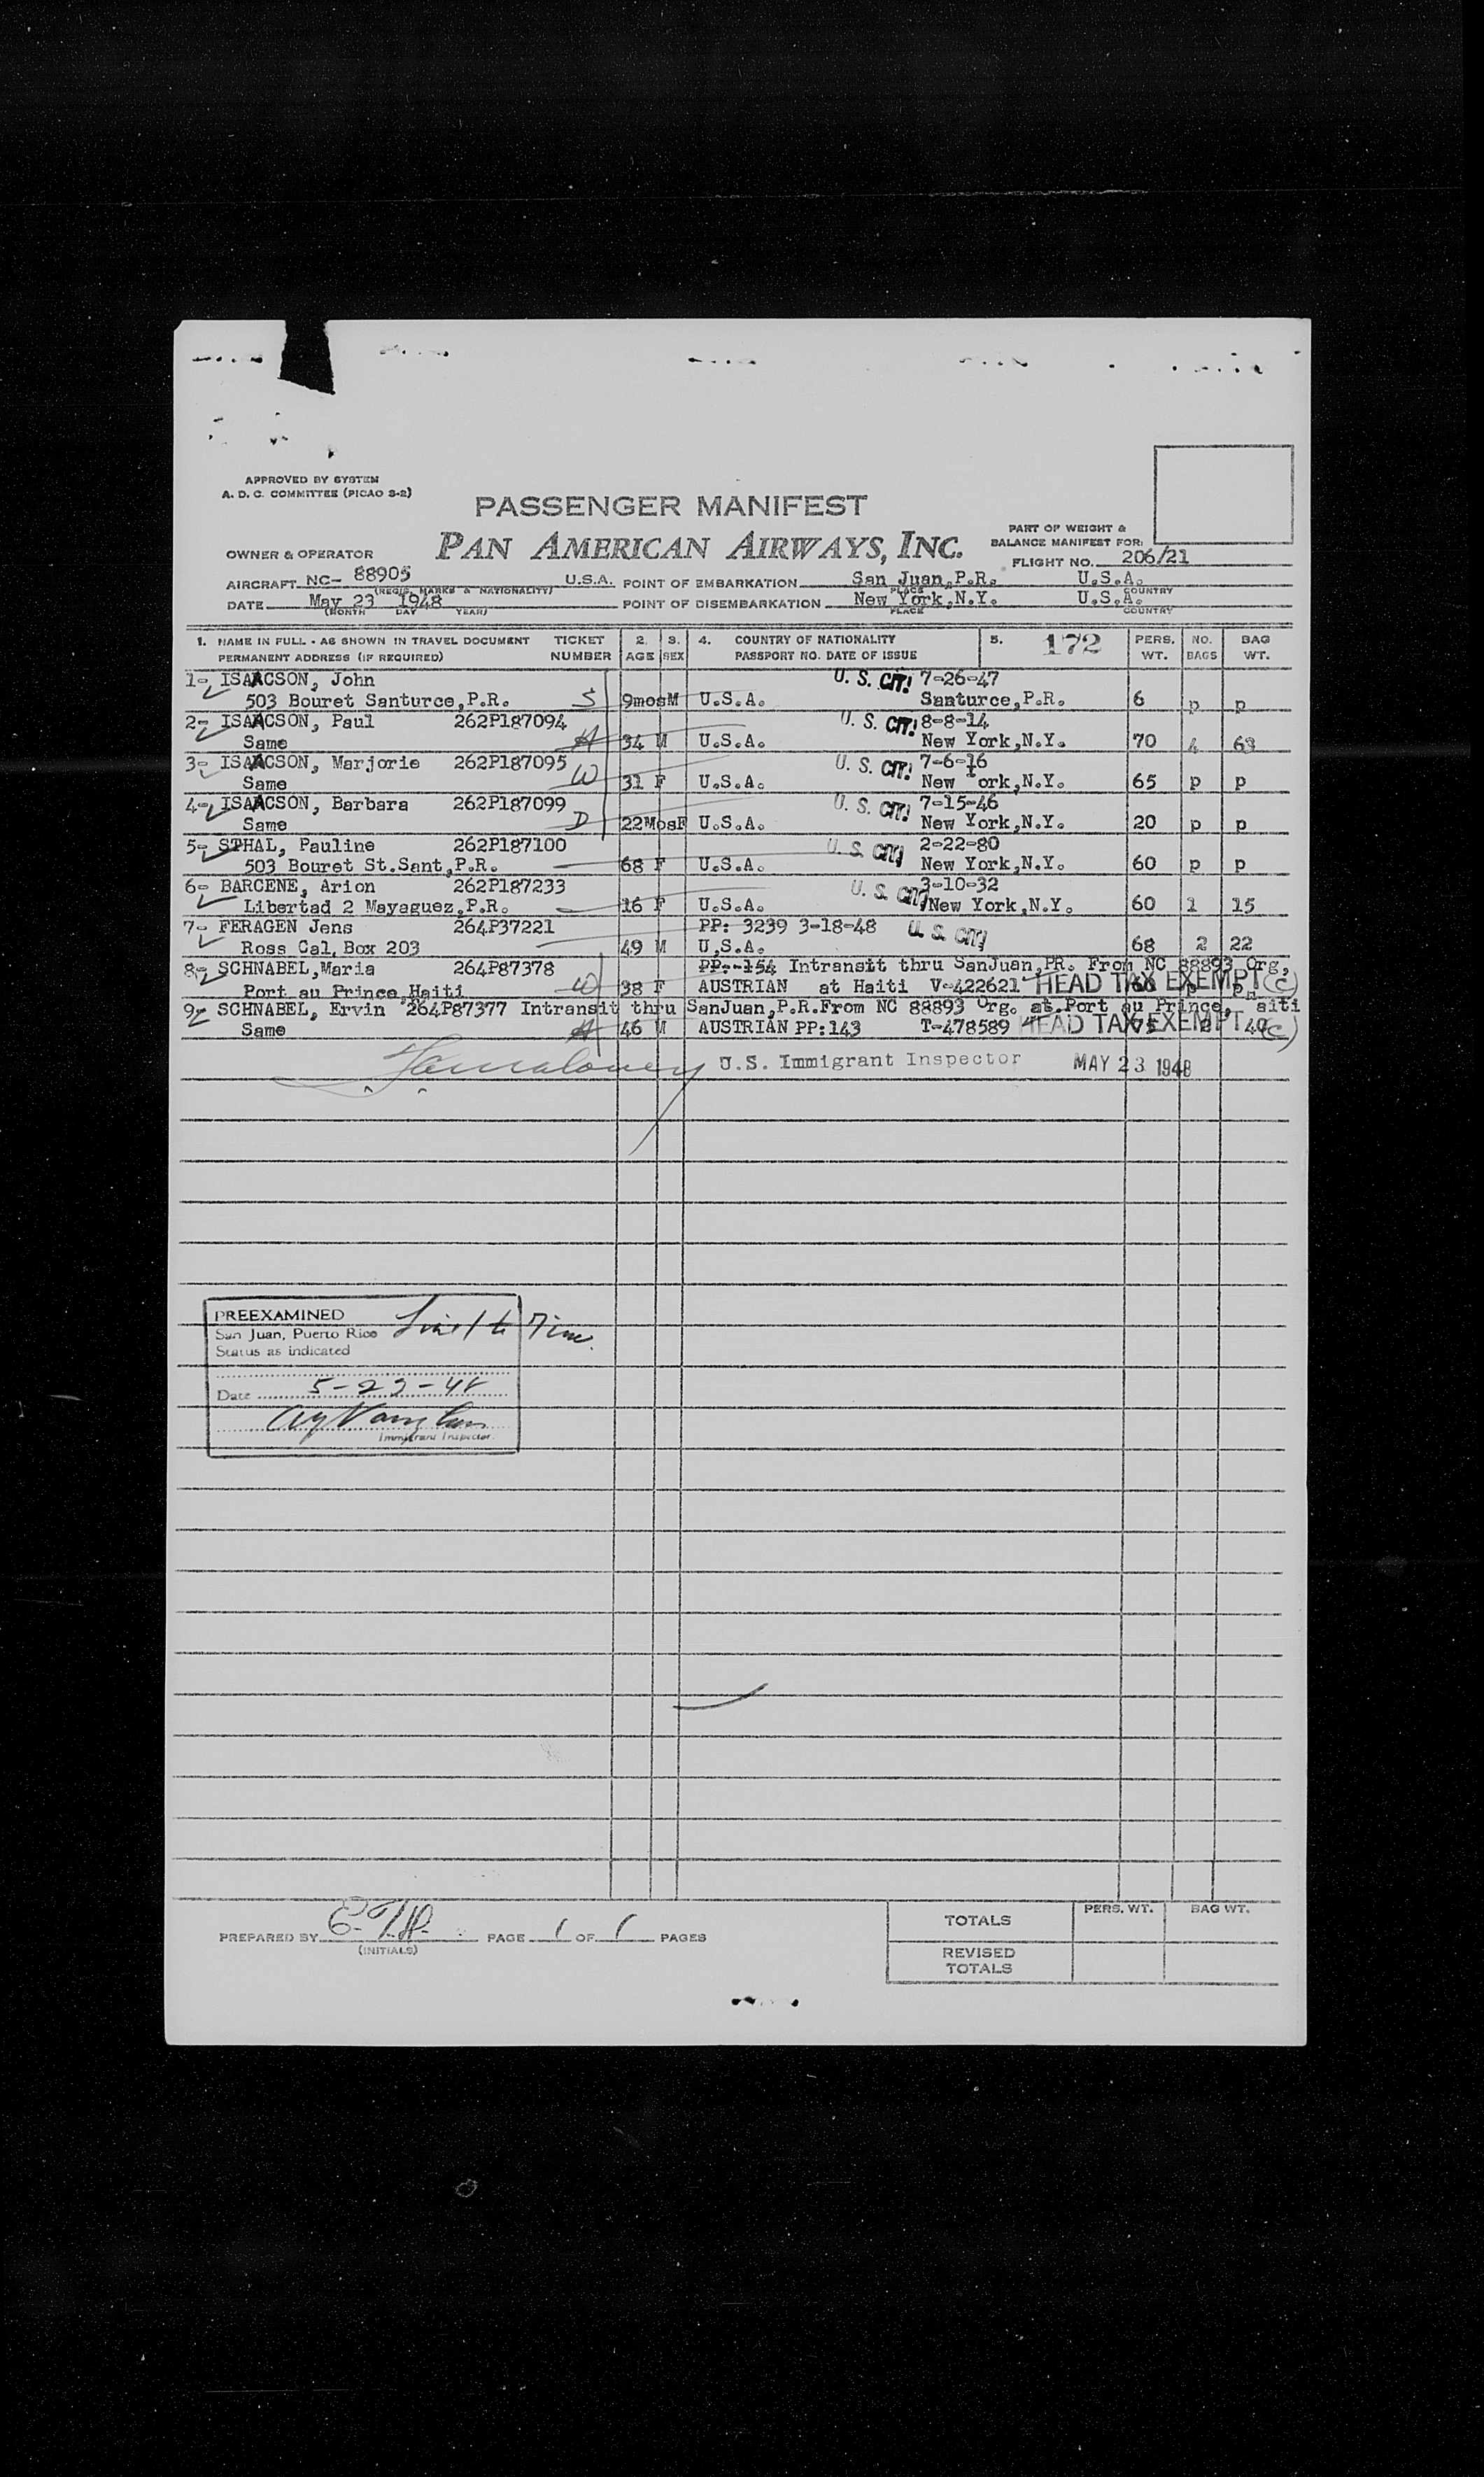 APPROVED BY SYSTEM
A. D. C. COMMITTEE (PICAO S-2)
PASSENGER MANIFEST
PAN AMERICAN AIRWAYS, INC.
PART OF WEIGHT &
BALANCE MANIFEST FOR:
OWNER & OPERATOR
FLIGHT NO. 206/21
AIRCRAFT NC- 88905 U.S.A. POINT OF EMBARKATION San Juan,P.R. U.S.A.
(REGIS. MARKS & NATIONALITY) PLACE COUNTRY
DATE May 23 1948 POINT OF DISEMBARKATION New York,N.Y. U.S.A.
(MONTH DAY YEAR) PLACE COUNTRY
1. NAME IN FULL - AS SHOWN IN TRAVEL DOCUMENT TICKET 2. 3. 4. COUNTRY OF NATIONALITY 5. 172 PERS. NO. BAG
PERMANENT ADDRESS (IF REQUIRED) NUMBER AGE SEX PASSPORT NO. DATE OF ISSUE WT. BAGS WT.
1- ISAACSON, John U. S. CIT! 7-26-47
503 Bouret Santurce,P.R. S 9mos M U.S.A. Santurce,P.R. 6 p p
2- ISAACSON, Paul 262P187094 U. S. CIT! 8-8-14
Same H 34 M U.S.A. New York,N.Y. 70 4 63
3- ISAACSON, Marjorie 262P187095 U. S. CIT! 7-6-16
Same W 31 F U.S.A. New York,N.Y. 65 p p
4- ISAACSON, Barbara 262P187099 U. S. CIT! 7-15-46
Same D 22Mos F U.S.A. New York,N.Y. 20 p p
5- STHAL, Pauline 262P187100 U. S. CIT! 2-22-80
503 Bouret St.Sant,P.R. 68 F U.S.A. New York,N.Y. 60 p p
6- BARCENE, Arion 262P187233 U. S. CIT! 3-10-32
Libertad 2 Mayaguez,P.R. 16 F U.S.A. New York,N.Y. 60 1 15
7- FERAGEN Jens 264P37221 PP: 3239 3-18-48 U. S. CIT!
Ross Cal. Box 203 49 M U,S.A. 68 2 22
8- SCHNABEL,Maria 264P87378 PP:-154 Intransit thru SanJuan,PR. From NC 88893 Org,
Port au Prince,Haiti W 38 F AUSTRIAN at Haiti V-422621 HEAD TAX EXEMPT (C)
9- SCHNABEL, Ervin 264P87377 Intransit thru SanJuan,P.R.From NC 88893 Org. at.Port au Prince, Haiti
Same H 46 M AUSTRIAN PP:143 T-478589 HEAD TAX EXEMPT 40 (C)
U.S. Immigrant Inspector MAY 23 1948
PREEXAMINED
San Juan, Puerto Rico
Status as indicated
Date 5-23-48
Immigrant Inspector.
PREPARED BY E.T.H. PAGE 1 OF 1 PAGES
(INITIALS)
PERS. WT. BAG WT.
TOTALS
REVISED
TOTALS